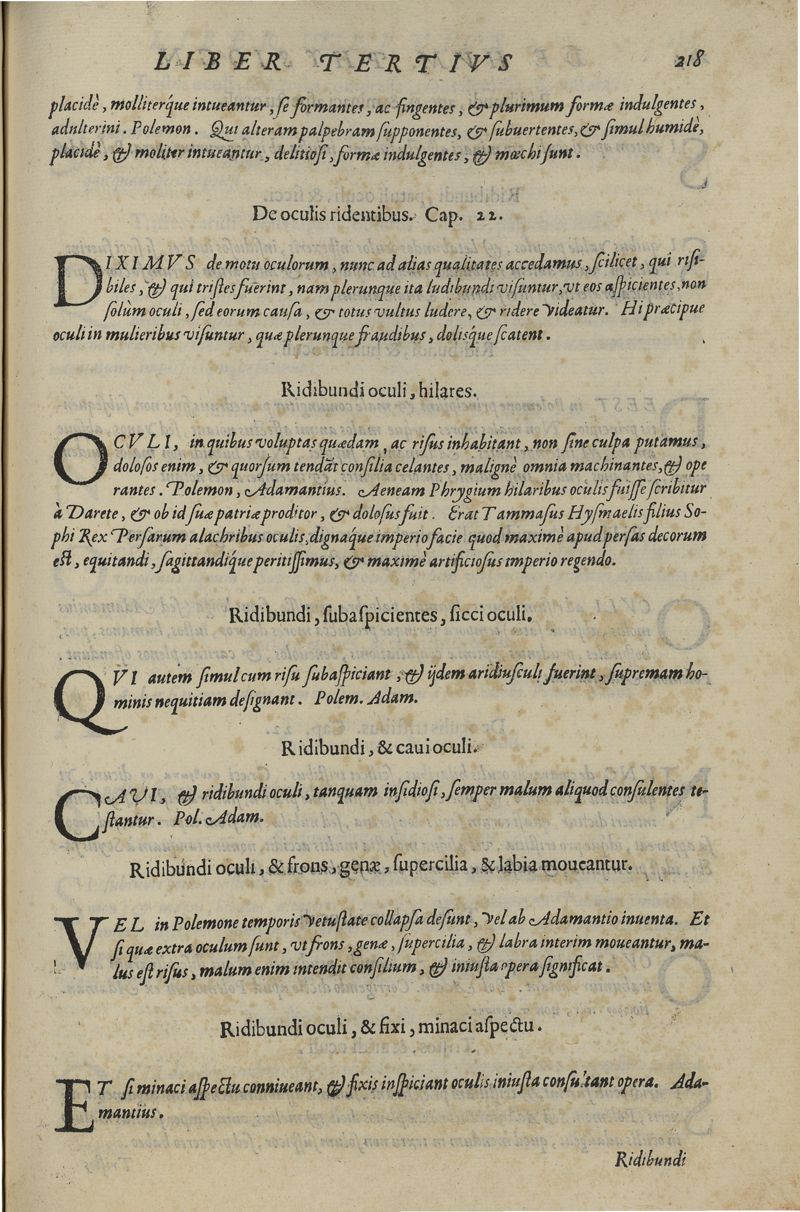 LIBER TERTIVS 218
placidè, molliterq́ue intueantur, ſe formantes, ac fingentes, & plurimum formæ indulgentes,
adulterini. Polemon. Qui alteram palpebram ſupponentes, & ſubuertentes, & ſimul humidè,
placidè, & moliter intueantur, delitioſi, formæ indulgentes, & mœchi ſunt.
De oculis ridentibus. Cap. 22.
DIXIMVS de motu oculorum, nunc ad alias qualitates accedamus, ſcilicet, qui riſi-
biles, & qui triſtes fuerint, nam plerunque ita ludibundi viſuntur, vt eos aſpicientes, non
ſolùm oculi, ſed eorum cauſa, & totus vultus ludere, & ridere videatur. Hi præcipue
oculi in mulieribus viſuntur, quæ plerunque fraudibus, dolisq́ue ſcatent.
Ridibundi oculi, hilares.
OCVLI, in quibus voluptas quædam, ac riſus inhabitant, non ſine culpa putamus,
doloſos enim, & quorſum tendãt conſilia celantes, malignè omnia machinantes, & ope
rantes. Polemon, Adamantius. Aeneam Phrygium hilaribus oculis fuiſſe ſcribitur
à Darete, & ob id ſuæ patriæ proditor, & doloſus fuit. Erat Tammaſus Hyſmaelis filius So-
phi Rex Perſarum alachribus oculis, dignaque imperio facie quod maximè apud perſas decorum
eſt, equitandi, ſagittandiq́ue peritiſſimus, & maximè artificioſus imperio regendo.
Ridibundi, ſubaſpicientes, ſicci oculi.
QVI autem ſimul cum riſu ſubaſpiciant, & ijdem aridiuſculi fuerint, ſupremam ho-
minis nequitiam deſignant. Polem. Adam.
Ridibundi, & caui oculi.
CAVI, & ridibundi oculi, tanquam inſidioſi, ſemper malum aliquod conſulentes te-
ſtantur. Pol. Adam.
Ridibundi oculi, & frons, genæ, ſupercilia, & labia moueantur.
VEL in Polemone temporis vetuſtate collapſa deſunt, vel ab Adamantio inuenta. Et
ſi quæ extra oculum ſunt, vt frons, genæ, ſupercilia, & labra interim moueantur, ma-
lus eſt riſus, malum enim intendit conſilium, & iniuſta opera ſignificat.
Ridibundi oculi, & fixi, minaci aſpectu.
ET ſi minaci aſpectu conniueant, & fixis inſpiciant oculis iniuſta conſultant opera. Ada-
mantius.
Ridibundi